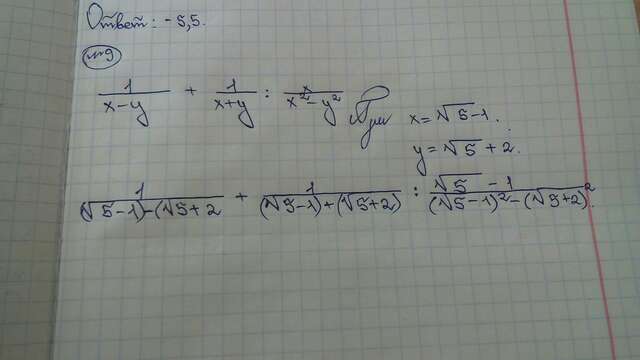 Ответ: -5,5.
№9
1/(x-y) + 1/(x+y) : x/(x²-y²) При x=√5-1.
y=√5+2.
1/((√5-1)-(√5+2) + 1/((√5-1)+(√5+2)) : (√5-1)/((√5-1)²-(√5+2)².